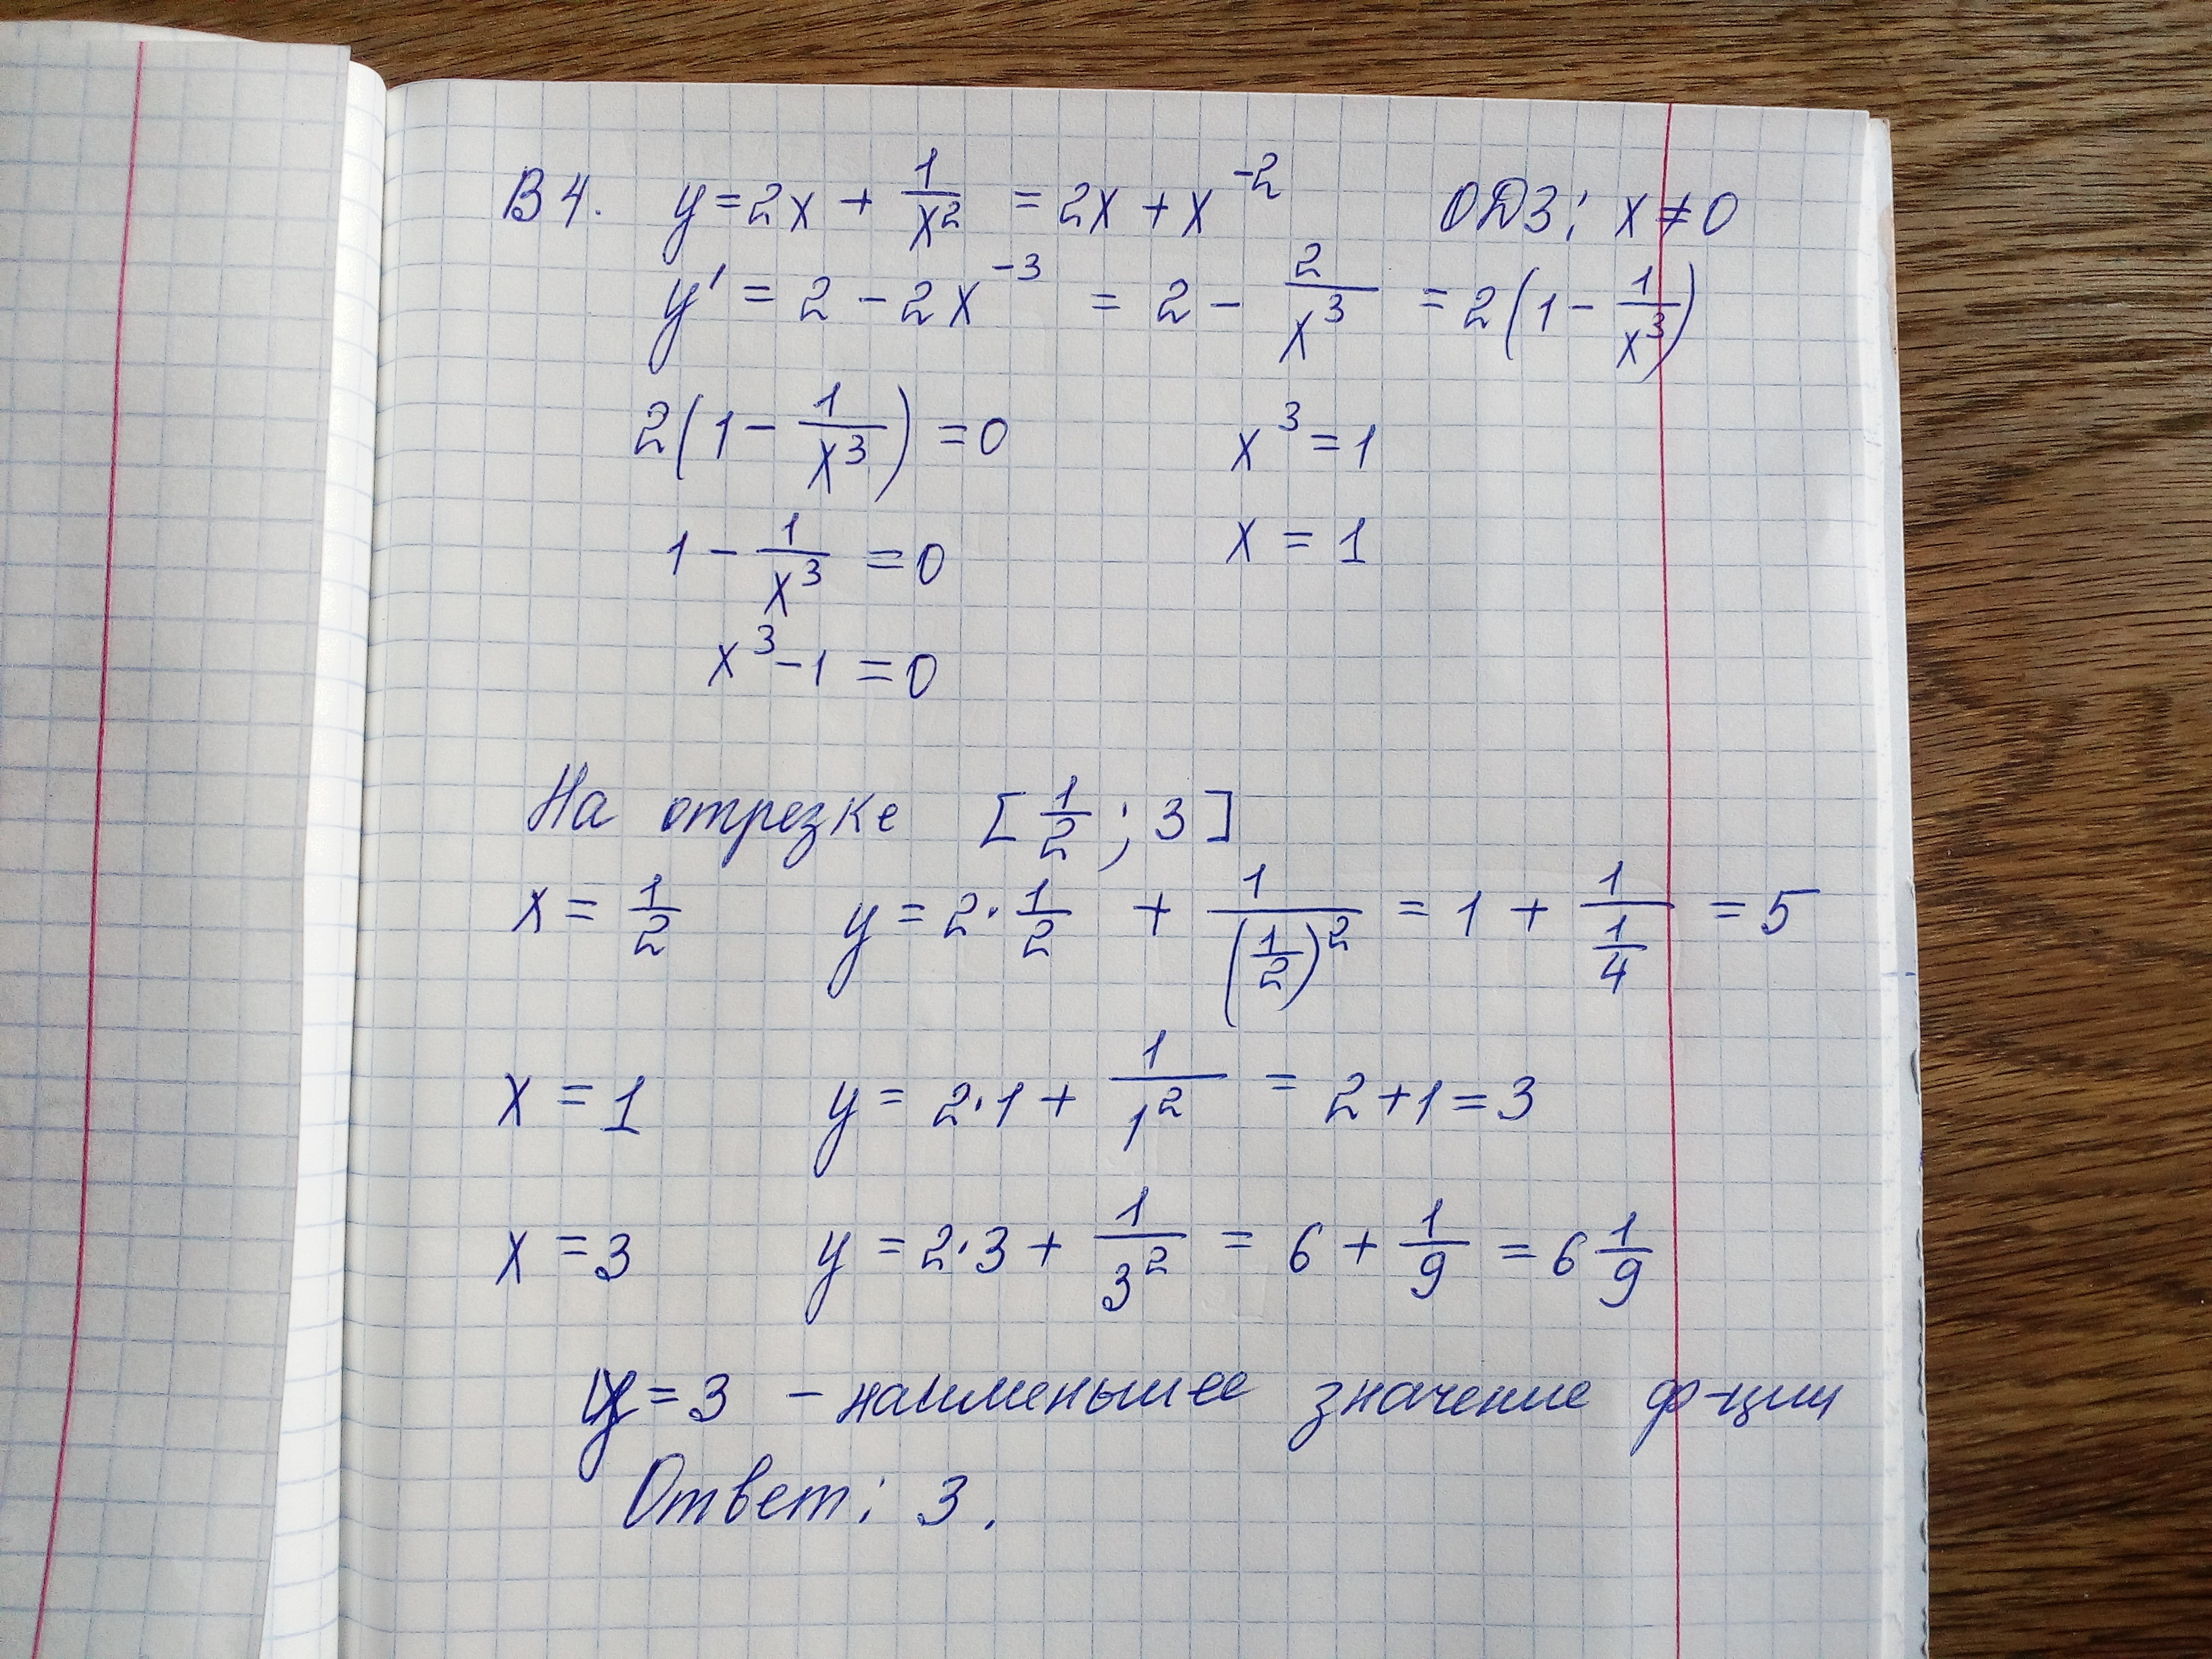 В4. y = 2x + 1/x² = 2x + x⁻² ОДЗ: x ≠ 0
y' = 2 - 2x⁻³ = 2 - 2/x³ = 2(1 - 1/x³)
2(1 - 1/x³) = 0 x³ = 1
1 - 1/x³ = 0 x = 1
x³ - 1 = 0
На отрезке [1/2; 3]
x = 1/2 y = 2·1/2 + 1/(1/2)² = 1 + 1/(1/4) = 5
x = 1 y = 2·1 + 1/1² = 2 + 1 = 3
x = 3 y = 2·3 + 1/3² = 6 + 1/9 = 6 1/9
y = 3 - наименьшее значение ф-ции
Ответ: 3.